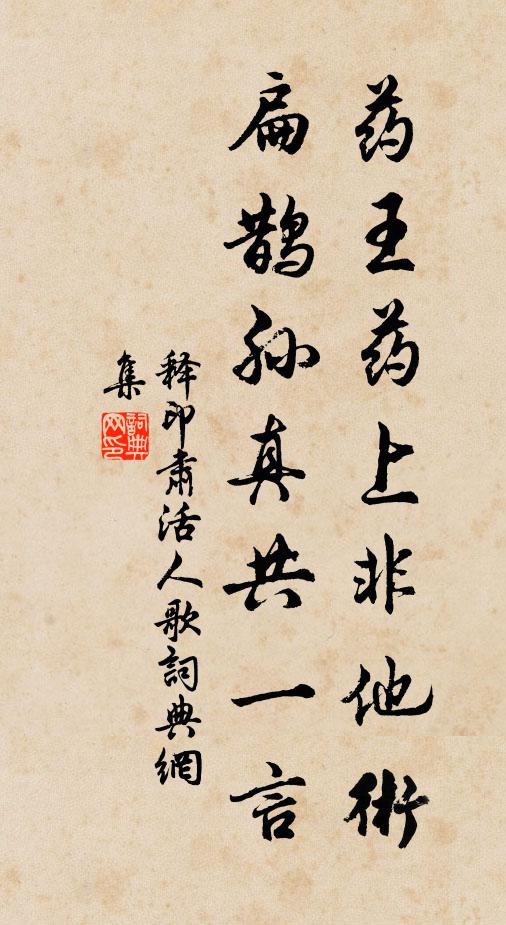 药王药上非他術
扁鹊孙真共一言
释印肃活人歌詞典網
集
詞典
网印